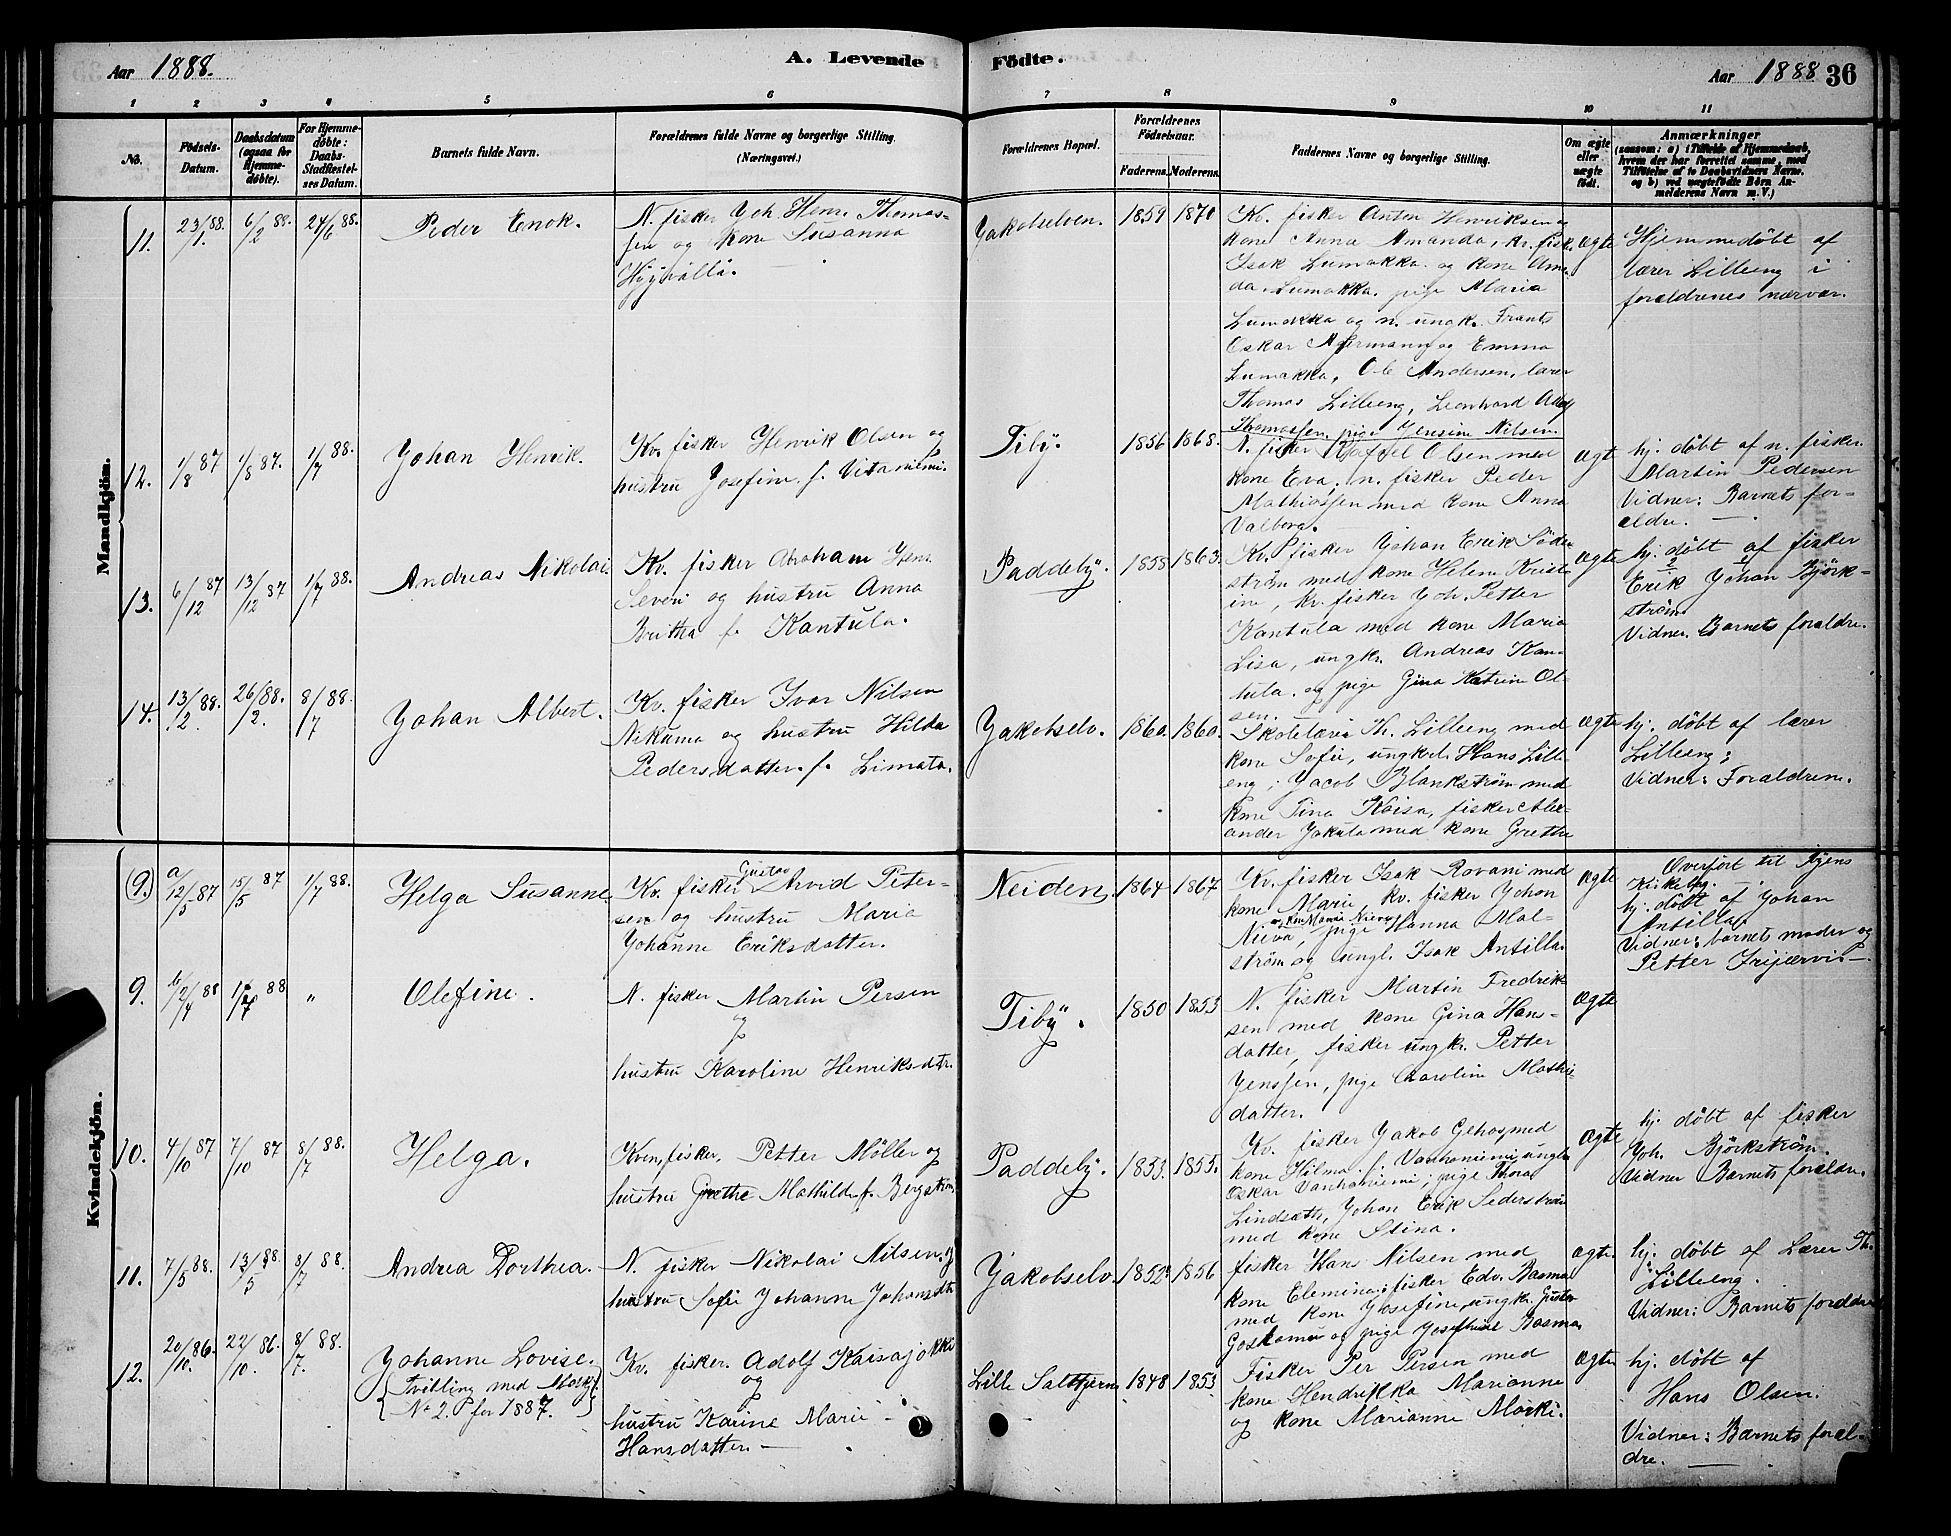 Aar 1888.
A. Levende
Fødte.
Aar 1888
36
1 2 3 4 5 6 7 8 9 10 11
No.
Födsels-
Datum.
Daabsdatum
(ogsaa for
Hjemme-
döbte).
For Hjemme-
døbte:
Daabs-
Stadfæstel-
ses Datum.
Barnets fulde Navn.
Forældrenes fulde Navne og borgerlige Stilling.
(Næringsvei.)
Forældrenes Bopæl.
Forældrenes
Födselsaar.
Faderens.
Moderens.
Faddernes Navne og borgerlige Stilling.
Om ægte
eller
uægte
födt.
Anmærkninger
(saasom: a) i Tilfælde af Hjemmedaab,
hvem der har forrettet samme, med
Tilföielse af to Daabsvidners Navne.
og b) ved uægtefödte Börn An-
melderens Navn m. V.)
Mandkjön.
11.
23/1 88.
6/2 88.
24/6 88.
Peder Enok.
N. fisker Joh. Henr. Thomas-
sen og kone Susanna
Jakobselven.
1859
1870
Kv. fisker Anton Henriksen og
kone Anna Amanda, kv. fisk.
Isak Lumakka og kone Aman-
da Lumakka, pige Maria
Lumakka og n. ungk. Frants
Oskar Akermann og Emma
Lumakka, Ole Andersen, lærer
Thomas Lilleeng, Leonhard Adolf
Thomassen, pige Jensine Nilsen.
ægte
Hjemmedøbt af
lærer Lilleeng i
forældrenes nærvær.
12.
1/8 87
1/8 87.
1/7 88.
Johan Henrik.
Kv. fisker Henrik Olsen og
hustru Josefine f. Vitaniemi.
Tiby.
1856
1868.
N. fisker Rafael Olsen med
kone Eva, n. fisker Peder
Mathiassen med kone Anna
Valborg.
ægte
hj. døbt af n. fisker
Martin Pedersen
Vidner: Barnets for-
ældre.
13.
6/12 87
13/12 87
1/7 88.
Andreas Nikolai.
Kv. fisker Abraham Henr.
Severi og hustru Anna
Britha f. Kantula.
Paddeby.
1858
1863.
Kv. fisker Johan Erik Söder
ström med kone Helene Krist-
ine, kv. fisker Joh. Petter
Kantula med kone Maria
Lisa, ungkr. Andreas Kan-
tula og pige Gina Katrine Ol-
sen.
ægte
hj. döbt af fisker
2 1
Erik Johan Björk-
ström
Vidner. Barnets forældre.
14.
13/2 88.
26/2 88.
8/7 88.
Johan Albert.
Kv. fisker Ivar Nilsen
Nikuma og hustru Hilda
Pedersdatter f. Limata.
Jakobselv.
1860.
1860.
Skolelærer Th. Lilleeng med
kone Sofie, ungkrl. Hans Lille-
eng; Jacob Blankström med
kone Tina Kaisa, fisker Alex-
ander Jakula med kone Grethe
ægte
hj. döbt af lærer
Lilleeng;
Vidner: Forældrene.
Kvindekjön.
(9.) a
12/5 87
15/5 87
1/7 88.
Helga Susanne
Kv. fisker Gustav Arvid Peter-
sen og hustru Maria
Johanne Eriksdatter.
Neiden.
1864
1867
Kv. fisker Isak Rovani med
kone Marie, kv. fisker Johan
Nieva, og kone Maria Nieva, pige Hanna Mal-
ström og ungk. Isak Antilla.
ægte
Overfört til Øyens
Kirkebog.
hj. döbt af Johan
Antilla.
Vidner: barnets moder og
Petter Irijærvi.
9. b
2/4 88
1/7 88
"
Olefine.
N. fisker Martin Persen
og
hustru Karoline Henriksdtr.
Tiby.
1850
1853
N. fisker Martin Fredrik-
sen med kone Gina Hans-
datter, fisker ungk. Petter
Jenssen, pige Caroline Mathis-
datter.
ægte
10.
4/10 87
7/10 87
8/7 88.
Helga.
Kven, fisker, Petter Möller og
hustru Grethe Mathilde f. Bergström
Paddeby.
1853.
1855.
Kv. fisker Jakob Gehos, med
kone Hilma f. Vanhaniemi, ungk.
Oskar Vanhaniemi; pige Thora
Lindsæth, Johan Erik Sederström
med kone Stina.
ægte
hj. döbt af fisker
Joh. Björkström.
Vidner Barnets forældre.
11.
7/5 88.
13/5 88.
8/7 88.
Andrea Dorthea.
N. fisker Nikolai Nilsen og
hustru Sofie Johanne Johansdtr
Jakobselv.
1852.
1856
fisker Hans Nilsen med
kone Elemina; fisker Edv. Basma
med kone Josefine, ungkr. Gustav
Goskamu og pige Josephine Basma.
ægte.
hj. döbt af Lærer Th.
Lilleeng.
Vidner: Barnets forældre
12.
20/10 86.
22/10 86.
8/7 88.
Johanne Lovise.
{Tvilling med Mdkj.
No 2. P for 1887.}
Kv. fisker. Adolf Kaisajokka
og
hustru Karine Marie
Hansdatter
Lille Saltjern
1848
1853
Fisker Per Persen med
kone Hendrikka Marianne
og kone Marianne Marki.
ægte
hj. döbt af
Hans Olsen.
Vidner: Barnets foræl-
dre.